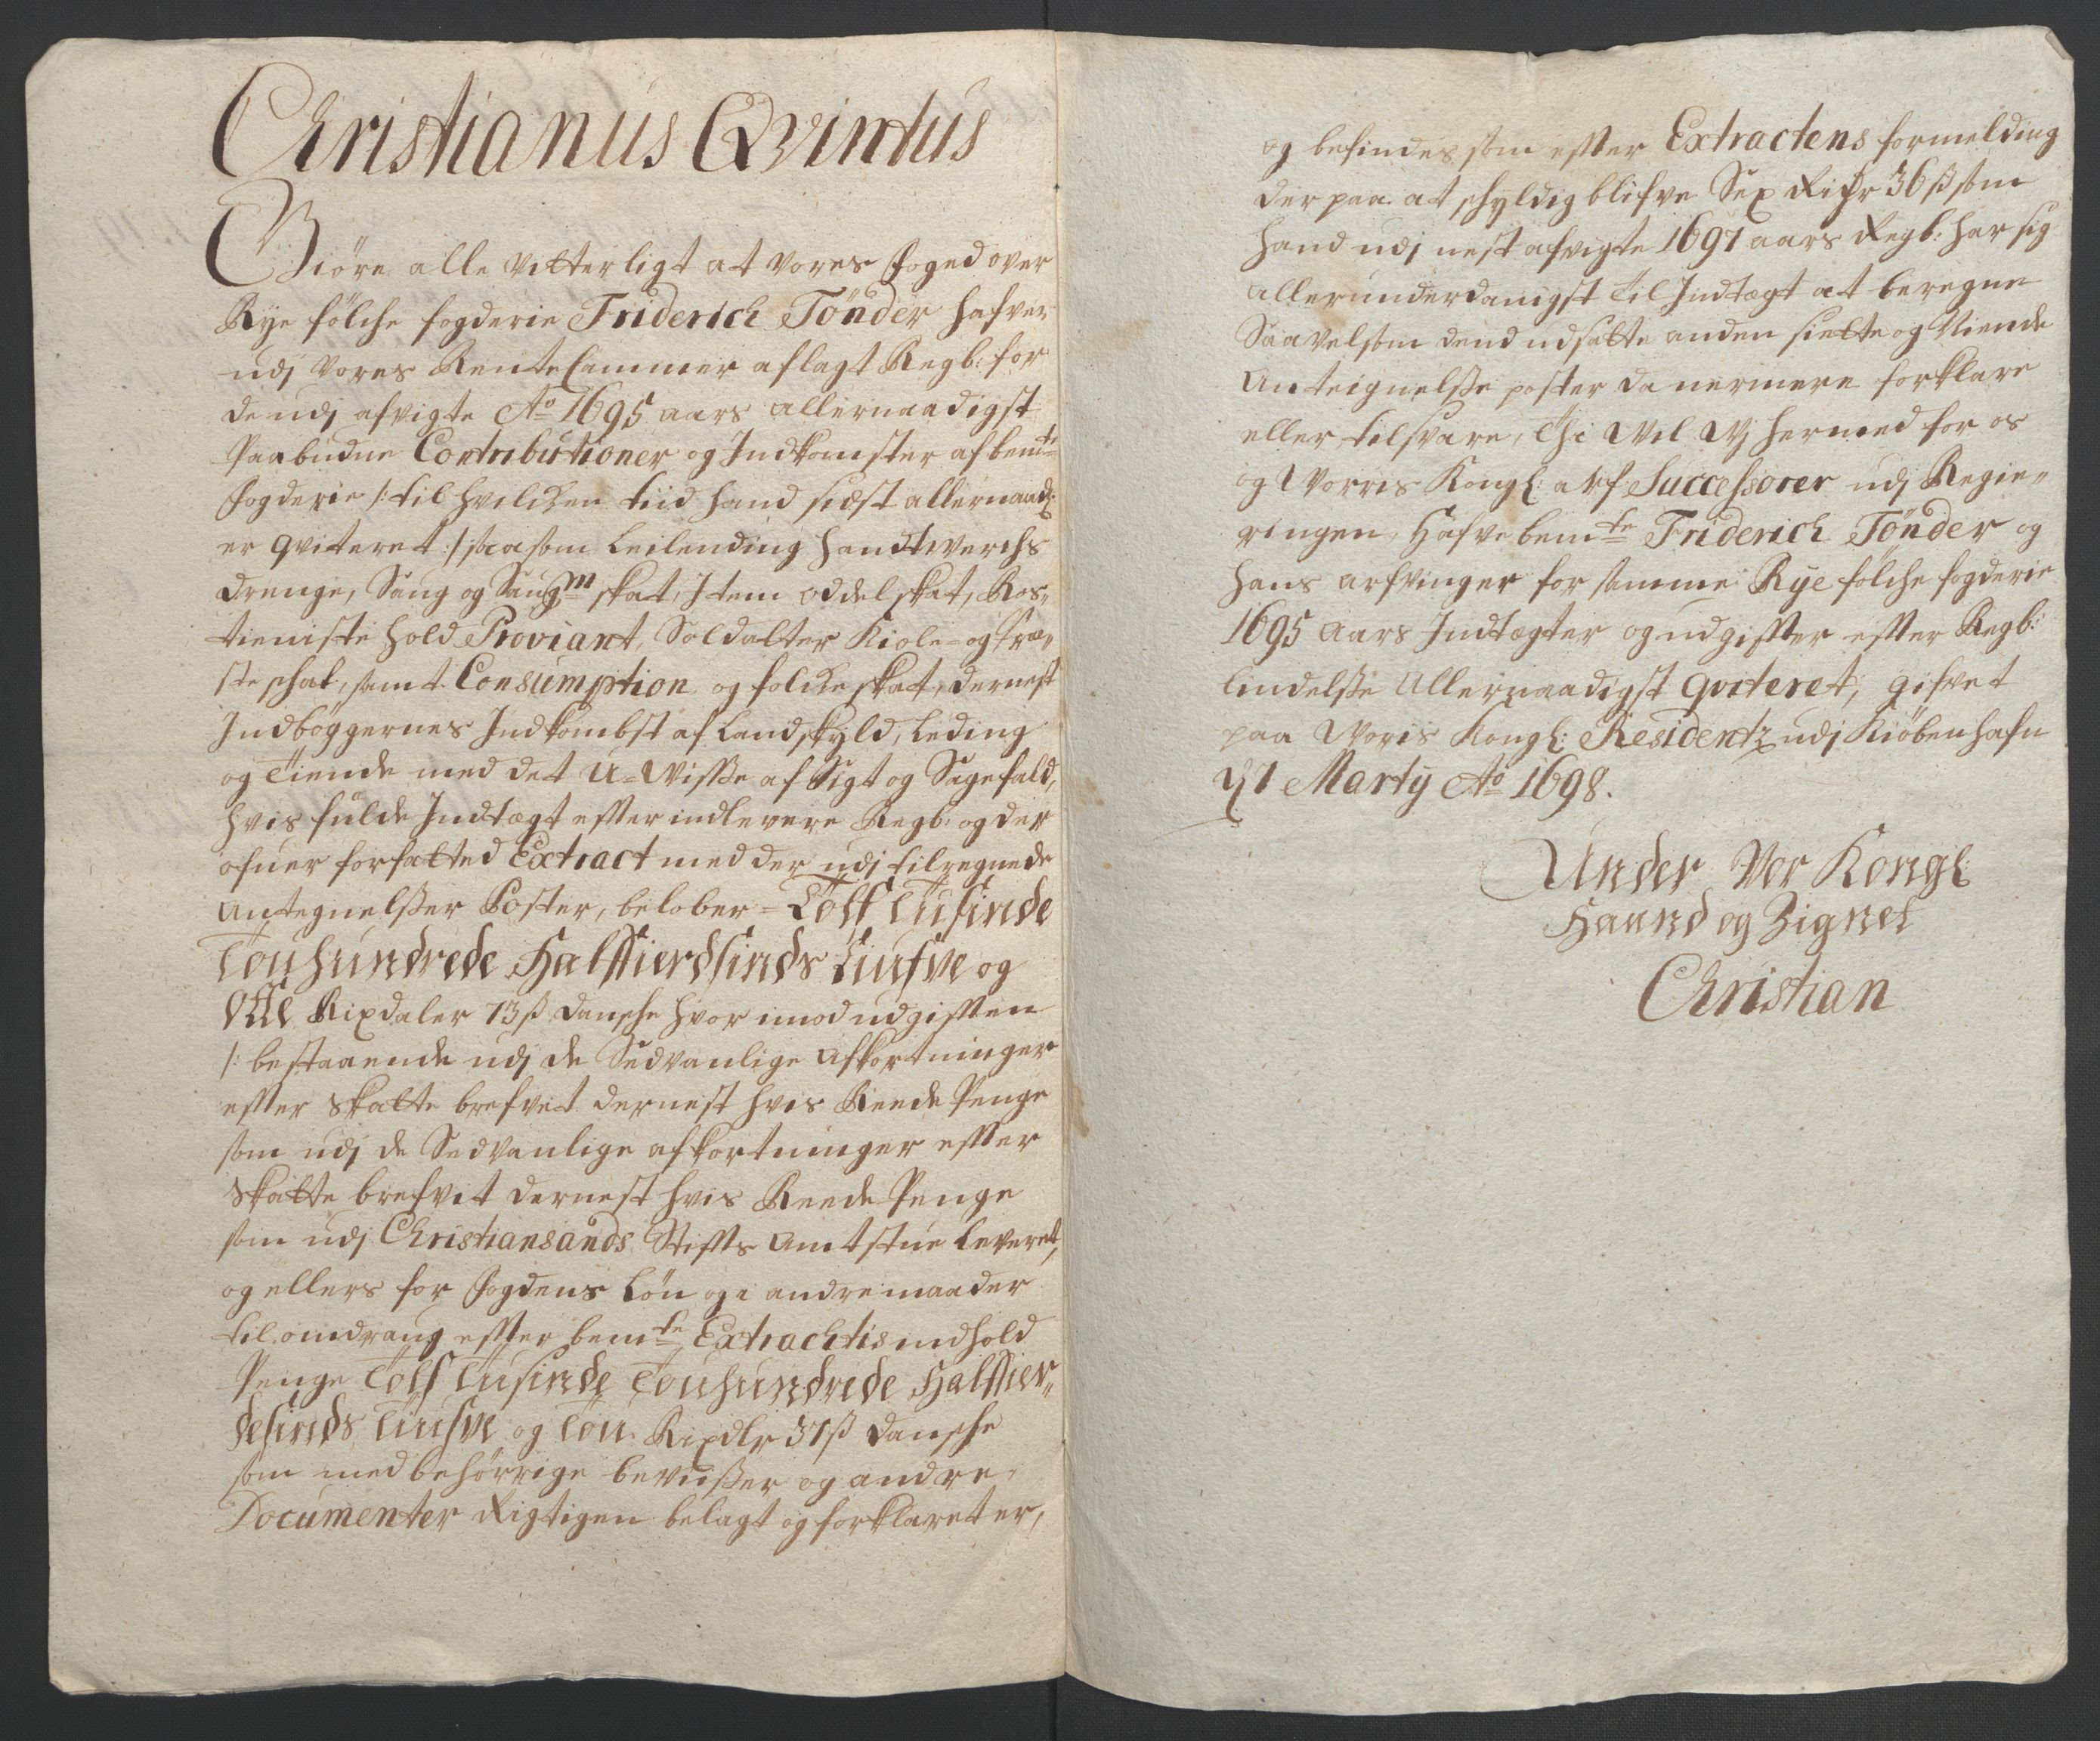 Christianus Qvintus
Giöre alle Vitterligt at Vores foged over
Rye fölche fogderie Friderich Tönder hafver
udj Vores Rente Cammer aflagt Regb: for
de udj afvigte Ao 1695 aars allernaadigst
Paabudne Contributioner og Indkomster af bemte
fogderie /: til hvilcken tiid hand sidst allernaad:
er qviteret :/ saasom Leilending handtwerchs
drenge, Saug og Saugm skat, Item oddel skat, Ros„
tieniste hold Proviant, Soldatter Kiole- og Præ„
ste schat, samt Consumption og folcke skat, dernest
Indböggernes Indkombst af Landskyld, Leding
og Tiende med det U-Wisse af Sigt og Sagefald,
hvis fulde Indtægt efter indlevere Regb: og der
ofuer forfatted Extract med der udj tilregnede
Antegnelsser Poster, belober = Tolf Tusinde
Touhundrede Halffierdsinds Tiufve og
Otte Rixdaler 73 ß dansche hvor imod udgifften
/: bestaaende udj de Sedvanlige Afkortninger
effter skatte brefvet dernest hvis Reede Penge
som udj de Sedvanlige afkortninger effter
skatte brefvet dernest hvis Reede Penge
som udj Christiansands Stiffts Amtstue leveret,
og ellers for fogdens Lön og i andre maader
til omdraug effter bemte Extrachtis indhold
Penge Tolf Tusinde Touhundrede Halffier„
desinds Tiufve og Tou Rixdlr 37 ß dansche
som med behörrige bevisser og andre
Documenter Rigtigen belagt og forklaret er,
og befindes som effter Extractens formelding
der paa at schyldig blifve Sex Rixdr 36 ß som
hand udj nest afvigte 1697 aars Regb: har sig
allerunderdanigst til Indtægt at beregne
Saavelsom dend udsatte anden siette og Niende
Anteignelsse poster da nermere forklare
eller tilsvare, Thi Wil Wj hermed for os
og Worris Kongl: arf Successorer udj Regie„
ringen, Hafve bemte Friderich Tönder og
hans arfvinger for samme Rye fölche fogderie
1695 aars Indtægter og udgiffter effter Regb:
lindelsse Allernaadigst qviteret, gifvet
paa Woris Kongl: Residentz udj Kiöbenhafn
Marty Ao 1698.
Under Vor Kongl:
Haand og Zignet
Christian